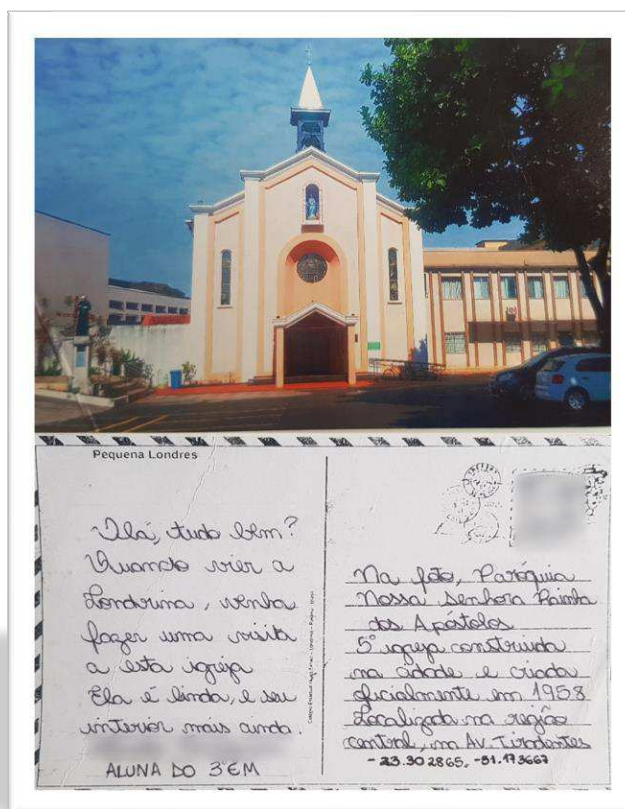 Pequena Londres
Olá, tudo bem?
Quando vier a
Londrina, venha
fazer uma visita
a esta igreja
Ela é linda, e seu
interior mais ainda.
ALUNA DO 3°EM
Na foto, Paróquia
Nossa Senhora Rainha
dos Apóstolos
5° igreja construída
na cidade e criada
oficialmente em 1958
Localizada na região
central, na Av. Tiradentes
-23.302865, -51.173667